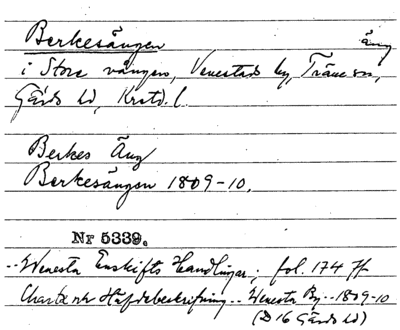 Berkesängen äng
i Stora vången, Venestads by, Träne sn,
Gärds hd, Krstd. l.
Berkes Äng
Berkesängen 1809-10.
Nr 5339.
Wenesta Enskifts Handlingar; fol. 174 ff
Charta och Häfdebeskrifning Wenesta By 1809-10
(D16 Gärds hd)